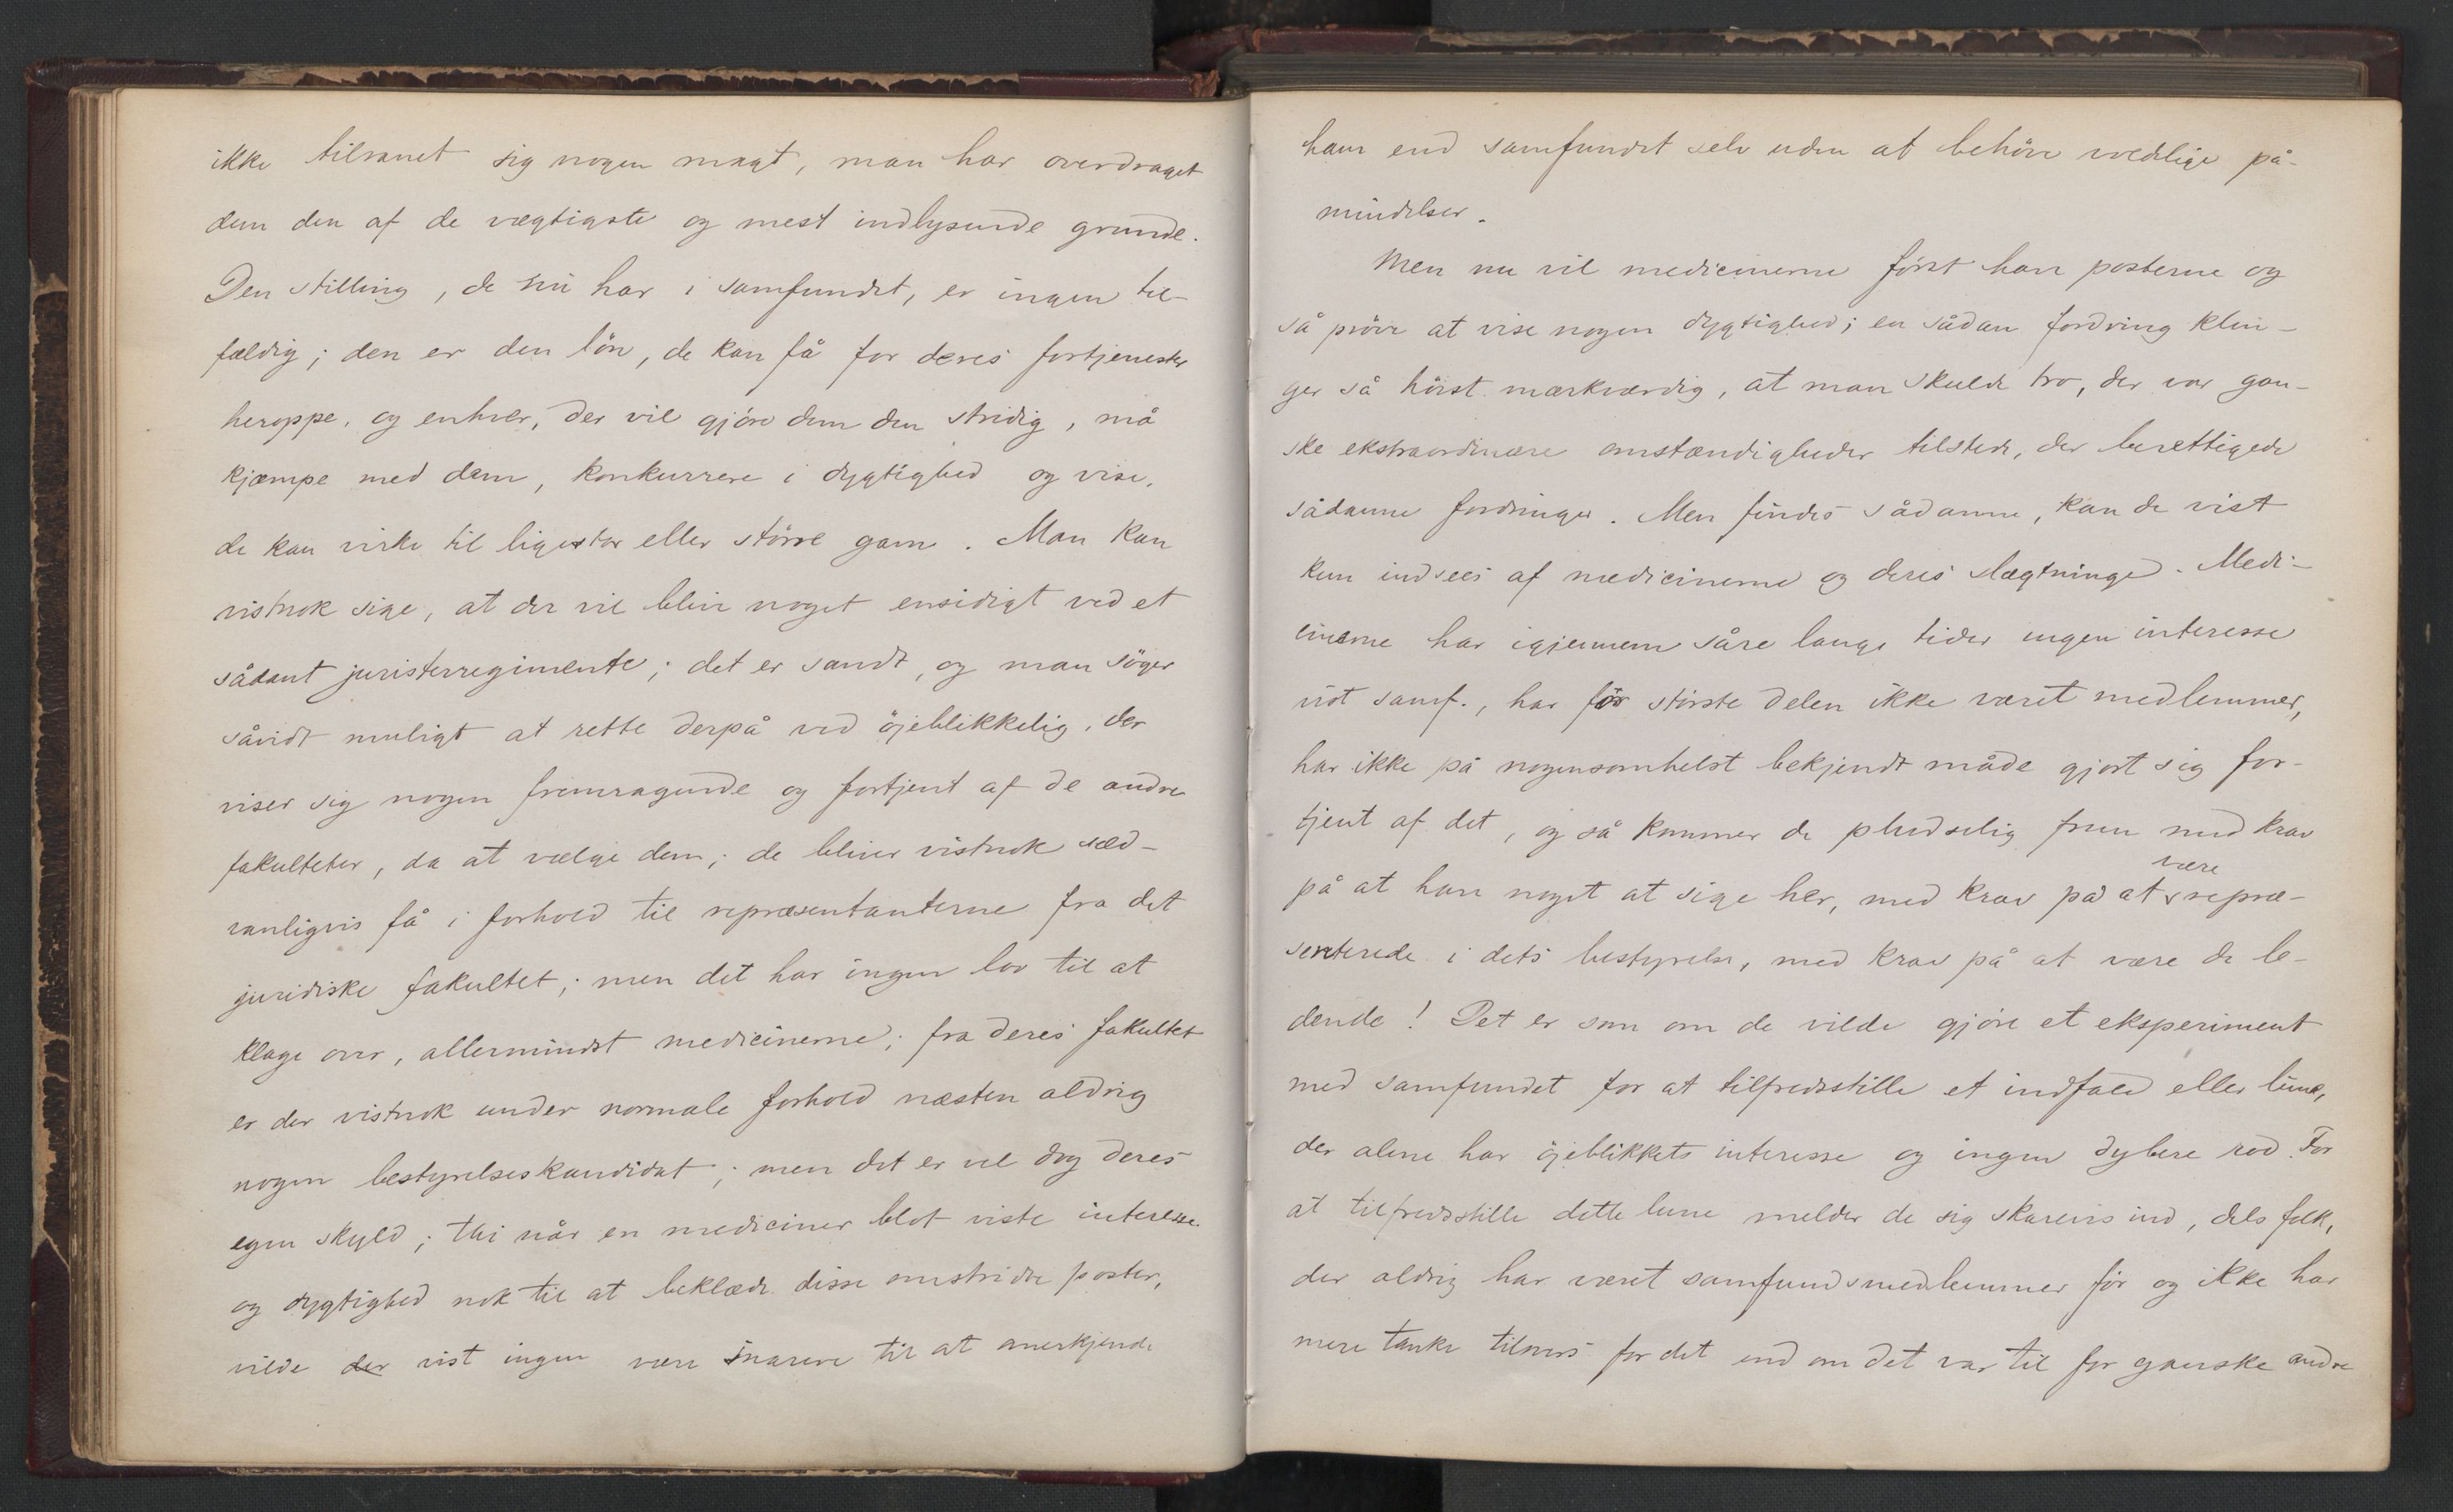 ikke tilranet sig nogen magt, man har overdraget
dem den af de vægtigste og mest indlysende grunde.
Den stilling, de nu har i samfundet, er ingen til-
fældig; den er den lön, de kan få for deres fortjenester
heroppe, og enhver, der vil gjöre dem den stridig, må
kjæmpe med dem, konkurrere i dygtighed og vise,
de kan virke til ligestor eller större gavn. Man kan
vistnok sige, at der vil blive noget ensidigt ved et
sådant juristerregimente; det er sandt, og man söger
såvidt muligt at rette derpå ved öjeblikkelig, der
viser sig nogen fremragende og fortjent af de andre
fakulteter, da at vælge dem; de bliver vistnok sæd-
vanligvis få i forhold til repræsentanterne fra det
juridiske fakultet; men det har ingen lov til at
klage over, allermindst medicinerne; fra deres fakultet
er der vistnok under normale forhold næsten aldrig
nogen bestyrelseskandidat; men det er vel dog deres
egen skyld; thi når en mediciner blot viste interesse
og dygtighed nok til at beklæde disse omstridte poster,
vilde der vist ingen være snarere til at anerkjende
ham end samfundet selv uden at behöve vedlige på-
mindelser.
Men nu vil medicinerne först have posterne og
så pröve at vise nogen dygtighed; en sådan fordring klin-
ger så höist mærkværdig, at man skulde tro, der var gan-
ske ekstraordinære omstændigheder tilstede, der berettigede
sådanne fordringer. Men findes sådanne, kan de vist
kun indsees af medicinerne og deres slægtninge. Medi-
cinerne har igjennem såre lange tider ingen interesse
vist samf., har for störste delen ikke været medlemmer,
har ikke på nogensomhelst bekjendt måde gjort sig for-
tjent af det, og så kommer de pludselig frem med krav
på at have noget at sige her, med krav på at være repræ-
senterede i dets bestyrelse, med krav på at være de le-
dende! Det er som om de vilde gjöre et eksperiment
med samfundet for at tilfredsstille et indfald eller lune,
der alene har öjeblikkets interesse og ingen dybere rod. For
at tilfredsstille dette lune melder de sig skarevis ind, dels folk,
der aldrig har været samfundsmedlemmer för og ikke har
mere tanke tilovers for det end om det var til for ganske andre